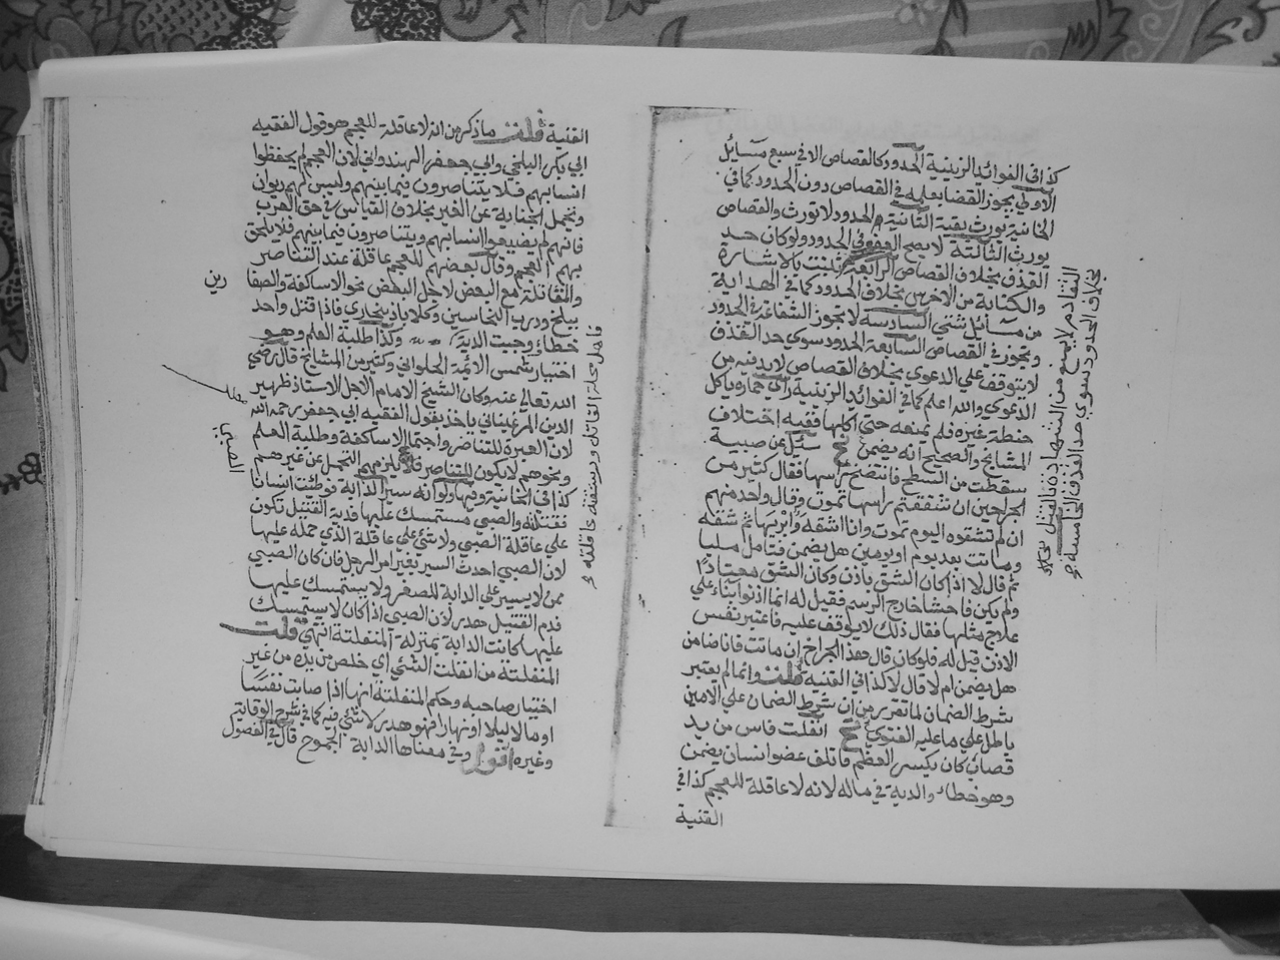 كذا في الفوائد الزينية الحدود كالقصاص الا في سبع مسايل
الاولي يجوز القضا بعلمه في القصاص دون الحدود كما في
الخانية يورث بقية الثانية الحدود لا تورث والقصاص
يورث الثالثة لا يصح العفو في الحدود ولو كان حد
القذف بخلاف القصاص الرابعة تثبت بالاشارة
والكتابة من الاخرس بخلاف الحدود كما في الهداية
من مسايل شتي السادسة لا تجوز الشفاعة في الحدود
وتجوز في القصاص السابعة الحدود سوي حد القذف
لا يتوقف علي الدعوي بخلاف القصاص لا بد فيه من
الدعوي والله اعلم كما في الفوائد الزينية راي حماره ياكل
حنطة غيره فلم يمنعه حتي اكلها ففيه اختلاف
المشايخ والصحيح انه يضمن سئل عن صبية
سقطت من السطح فانتفخ راسها فقال كثير من
الجراحين ان شققتم راسها تموت وقال واحد منهم
ان لم تشقوه اليوم تموت وانا اشقه وابريها ثم شقه
وماتت بعد يوم او يومين هل يضمن فتامل مليا
ثم قال لا اذا كان الشق باذن وكان الشق معتادا
ولم يكن فاحشا خارج الرسم فقيل له انما اذنوا بناء علي
علاج مثلها فقال ذلك لا يوقف عليه فاعتبر نفس
الاذن قيل له فلو كان قال هذا الجراح ان ماتت فانا ضامن
هل يضمن ام لا قال لا كذا في القنية قلت وانما لم يعتبر
شرط الضمان لما تقرر من ان شرط الضمان علي الامين
باطل علي ما عليه الفتوي انفلت فاس من يد
قصاب كان يكسر العظم فاتلف عضو انسان يضمن
وهو خطاء والدية في ماله لانه لا عاقلة للعجم كذا في
القنية
التقادم لا يمنع من الشهادة بالقتل بخلاف
بخلاف الحدود سوي حد القذف الخامسة
القنية قلت ما ذكر من انه لا عاقلة للعجم هو قول الفقيه
ابي بكر البلخي وابي جعفر الهندواني لان العجم لم يحفظوا
انسابهم فلا يتناصرون فيما بينهم وليس لهم ديوان
وتحمل الجناية عن الغير بخلاف القياس في حق العرب
فانهم لم يضيعوا انسابهم ويتناصرون فيما بينهم فلا يلحق
بهم العجم وقال بعضهم للعجم عاقلة عند التناصر
والمقاتلة مع البعض لاجل البعض نحو الاساكفة والصفا
رين
ببلخ ودرب النحاسين وكلاباذ ببخاري فاذا قتل واحد
خطاء وجبت الدية وكذا طلبة العلم وهو
اختيار شمس الائمة الحلواني وكثير من المشايخ قال رضي
الله تعالي عنه وكان الشيخ الامام الاجل الاستاذ ظهير
الدين المرغيناني ياخذ بقول الفقيه ابي جعفر رحمه الله
لان العبرة للتناصر واجتماع الاساكفة وطلبة العلم
ونحوهم لا يكون للتناصر فلا يلزمهم التحمل عن غيرهم
كذا في الخانية وفيها ولو انه سير الدابة فوطئت انسانا
فقتلته والصبي مستمسك عليها فدية القتيل تكون
علي عاقلة الصبي ولا شئ علي عاقلة الذي حمله عليها
لان الصبي احدث السير بغير امر الرجل فان كان الصبي
ممن لا يسير علي الدابة للصغر ولا يستمسك عليها
فدم القتيل هدر لان الصبي اذا كان لا يستمسك
عليها كانت الدابة بمنزلة المنفلتة انتهي قلت
المنفلتة من انفلت الشئ اي خلص من يده من غير
اختيار صاحبه وحكم المنفلتة انها اذا اصابت نفسا
او مالا ليلا او نهارا فهو هدر لا شئ فيه كما في شرح الوقاية
وغيره اقول وفي معناها الدابة الجموح قال في الفصول
فاهل محلة القاتل ورستقته عاقلته